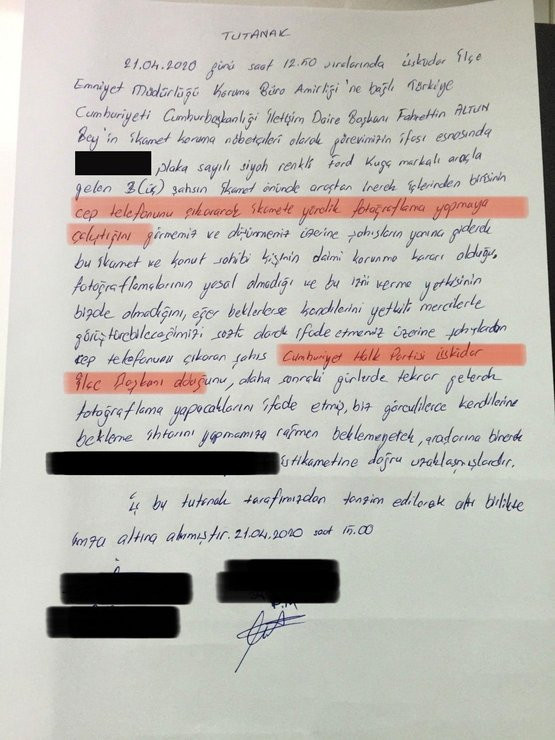 TUTANAK
21.04.2020 günü saat 12.50 sıralarında Üsküdar İlçe
Emniyet Müdürlüğü Koruma Büro Amirliği'ne bağlı Türkiye
Cumhuriyeti Cumhurbaşkanlığı İletişim Daire Başkanı Fahrettin ALTUN
Bey'in ikamet koruma nöbetçileri olarak görevimizin ifası esnasında
plaka sayılı siyah renkli Ford Kuga markalı araçla
gelen 3 (üç) şahsın ikamet önünde araçtan inerek içlerinden birisinin
cep telefonunu çıkararak ikamete yönelik fotoğraflama yapmaya
çalıştığını görmemiz ve üzerine şahısların yanına giderek
bu ikamet ve konut sahibi kişinin daimi koruma kararı olduğu,
fotoğraflamalarının yasal olmadığı ve bu izni verme yetkisinin
bizde olmadığını, eğer beklerlerse kendilerini yetkili mercilerle
görüştürebileceğimizi sözlü olarak ifade etmemiz üzerine şahıslardan
cep telefonunu çıkaran şahıs Cumhuriyet Halk Partisi Üsküdar
İlçe Başkanı olduğunu, daha sonraki günlerde tekrar gelerek
fotoğraflama yapacaklarını ifade etmiş, biz görevlilerce kendilerine
bekleme ihtarını yapmamıza rağmen beklemeyerek, araçlarına binerek
istikametine doğru uzaklaşmışlardır.
İş bu tutanak tarafımızdan tanzim edilerek altı birlikte
imza altına alınmıştır. 21.04.2020 saat 15.00
P.M